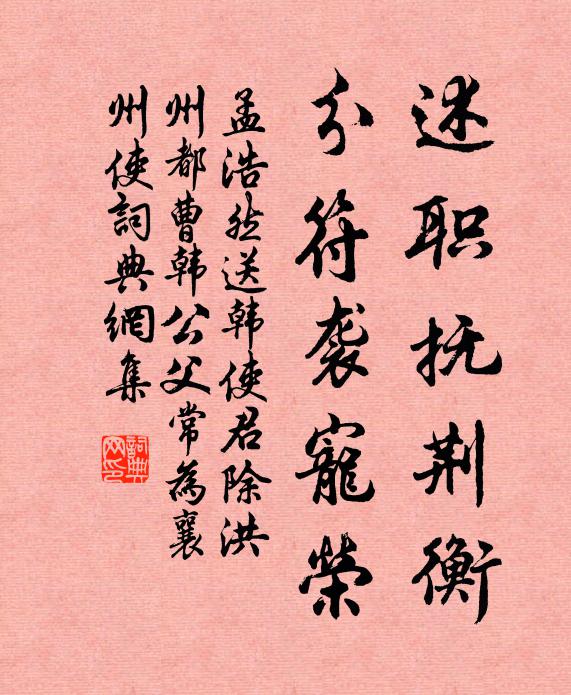 述职抚荆衡
分符袭寵榮
孟浩然送韩使君除洪
州都曹韩公父常為襄
州使詞典網集
詞典
网印